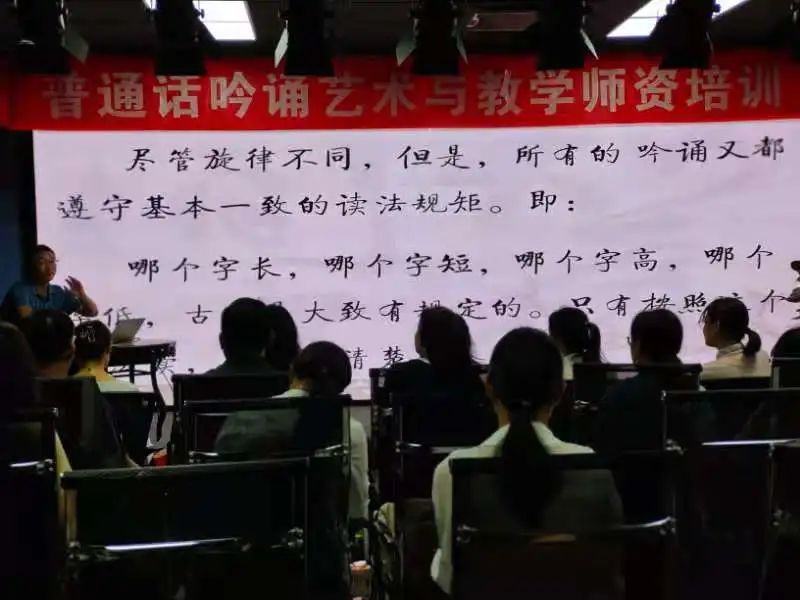 普通话吟诵艺术与教学师资培训
尽管旋律不同，但是，所有的吟诵又都
遵守基本一致的读法规矩。即：
哪个字长，哪个字短，哪个字高，哪个
低，古 大致有规定的。只有按照这个
读， 清楚